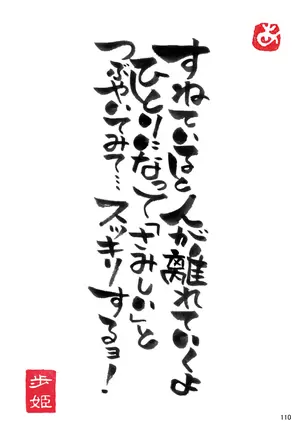 すねていると人が離れていくよ
ひとりになって「さみしい」と
つぶやいてみて…スッキリするョ!
あ
歩姫
110